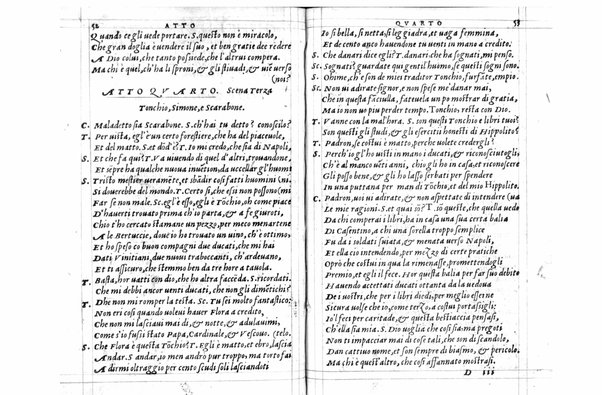 52 ATTO
Quando e gli vede portare. S. questo non è miracolo,
Che gran doglia è uendere il suo, et ben gratie dee rēdere
A Dio colui, che tanto possiede, che l'altrui compera.
Ma chi è quel, c'ha li sproni, & gli stiuali, & uiē uerso
(noi?
ATTO QVARTO. Scena Terza
Tonchio, Simone, e Scarabone.
C. Maladetto sia Scarabone. S. ch'hai tu detto? conoscilo?
T. Per uista, egl'è un certo forestiere, che ha del piaceuole,
Et del matto. S. ōd'è? T. Io mi credo, che sia di Napoli,
S. Et che fa qui? T. Va uiuendo di quel d'altri, trouandone,
Et sempre ha qualche nuoua inuention, da uccellar gl'huomi
S. Tristo mestier ueramēte, et sbādir cosi fatti huomini (ni,
Si douerebbe del mondo. T. Certo si, che esi non possono (mi
Far se non male. Sc. egl'è esso, egl'è Tonchio, oh come piace
D'hauerti trouato prima ch'io parta, & a fe giuroti,
Ch'io t'ho cercato stamane un pezzo, per menartene
A le Bertuccie, dou'io ho trouato un vino, ch'è ottimo,
Et ho speso co buon compagni due ducati, che mai
Dati V initiani, due nuoui traboccanti, ch'ardeuano,
Et ti assicuro, che stemmo ben da tre hore a tauola.
T. Basta, hor vatti con dio, che ho altra faccēda. S. ricordati.
Che mi debbi ancor uenti ducati, che non gli dimētichi?
T. Dhe non mi romper la testa. Sc. Tu sei molto fantastico:
Non eri cosi quando uoleui hauer Flora a credito,
Che non mi lasciaui mai di, & notte, & adulauimi,
Come s'io fussi stato Papa, Cardinale, & Vescouo. (telo.
S. Che Flora è questa Tōchio? T. Egli è matto, et ebro, lascia
Andar. S. andar, io men andrò pur troppo, ma torto fai
A dirmi oltraggio per cento scudi soli lasciandoti
QVARTO 53
Io si bella, si netta, si leggiadra, et uaga femmina,
Et de cento anco hauendone tu uenti in mano a credito.
S. Che danari dice egli? T. non gli date orecchi, è farnetico.
Sc. Sognati? guardate qui quest'huomo, se questi sogni sono.
S. Ohime, ch'e son de miei traditor Tonchio, furfāte, empio.
Sc. Non ui adirate signor, e non spese mē danar mai,
Che in questa fāciulla, fateuela un po mostrar di gratia,
Ma io non uo più perder tempo. Tonchio, resta con Dio.
T. Vanne con la mal'hora. S. son questi Tonchio e libri tuoi?
Son questi gli studi, & gli eserciti honesti di Hippolito?
T. Padron, se costui è matto, perche uolete credergli?
S. Perch'io gl'ho uisti in mano i ducati, & riconosciutegli;
Ch'è al manco uēti anni, ch'io gli ho in casa, et rincrescere
Gli posso bene, & gli ho lasso serbati per spendere
In una puttana per man di Tōchio, et del mio Hippolito.
C. Padron, uoi ui adirate, & non aspettate di intendere (ua
Le mie ragioni. S. et quai iō? T. iō queste, che quella uedo
Da chi comperai i libri, ha in casa una sua certa balia
Di Casentino, a chi una sorella troppo semplice
Fu da i soldati suiata, & menata uerso Napoli,
Et ella cio intendendo, per mezzo di certe pratiche
Oprò che costui in qua la rimenasse, promettendogli
Premio, et egli il fece. Hor questa balia per far suo debito
Hauendo accettati ducati ottanta da la uedoua
De i uostri, che per i libri diedi, per meglio esserne
Sicura uolse ch'io, come terzo, a costui portasigli;
Io'l feci per caritade, & questa bestiaccia pensasi,
Ch'ella sia mia. S. Dio uoglia che cosi sia: ma pregoti
Non ti impacciar mai cosi con tali, che son di scandalo,
Dan cattiuo nome, et son sempre di biasmo, & pericolo.
Ma chi è quest'altro, che cosi affannato mostrasi.
D iii